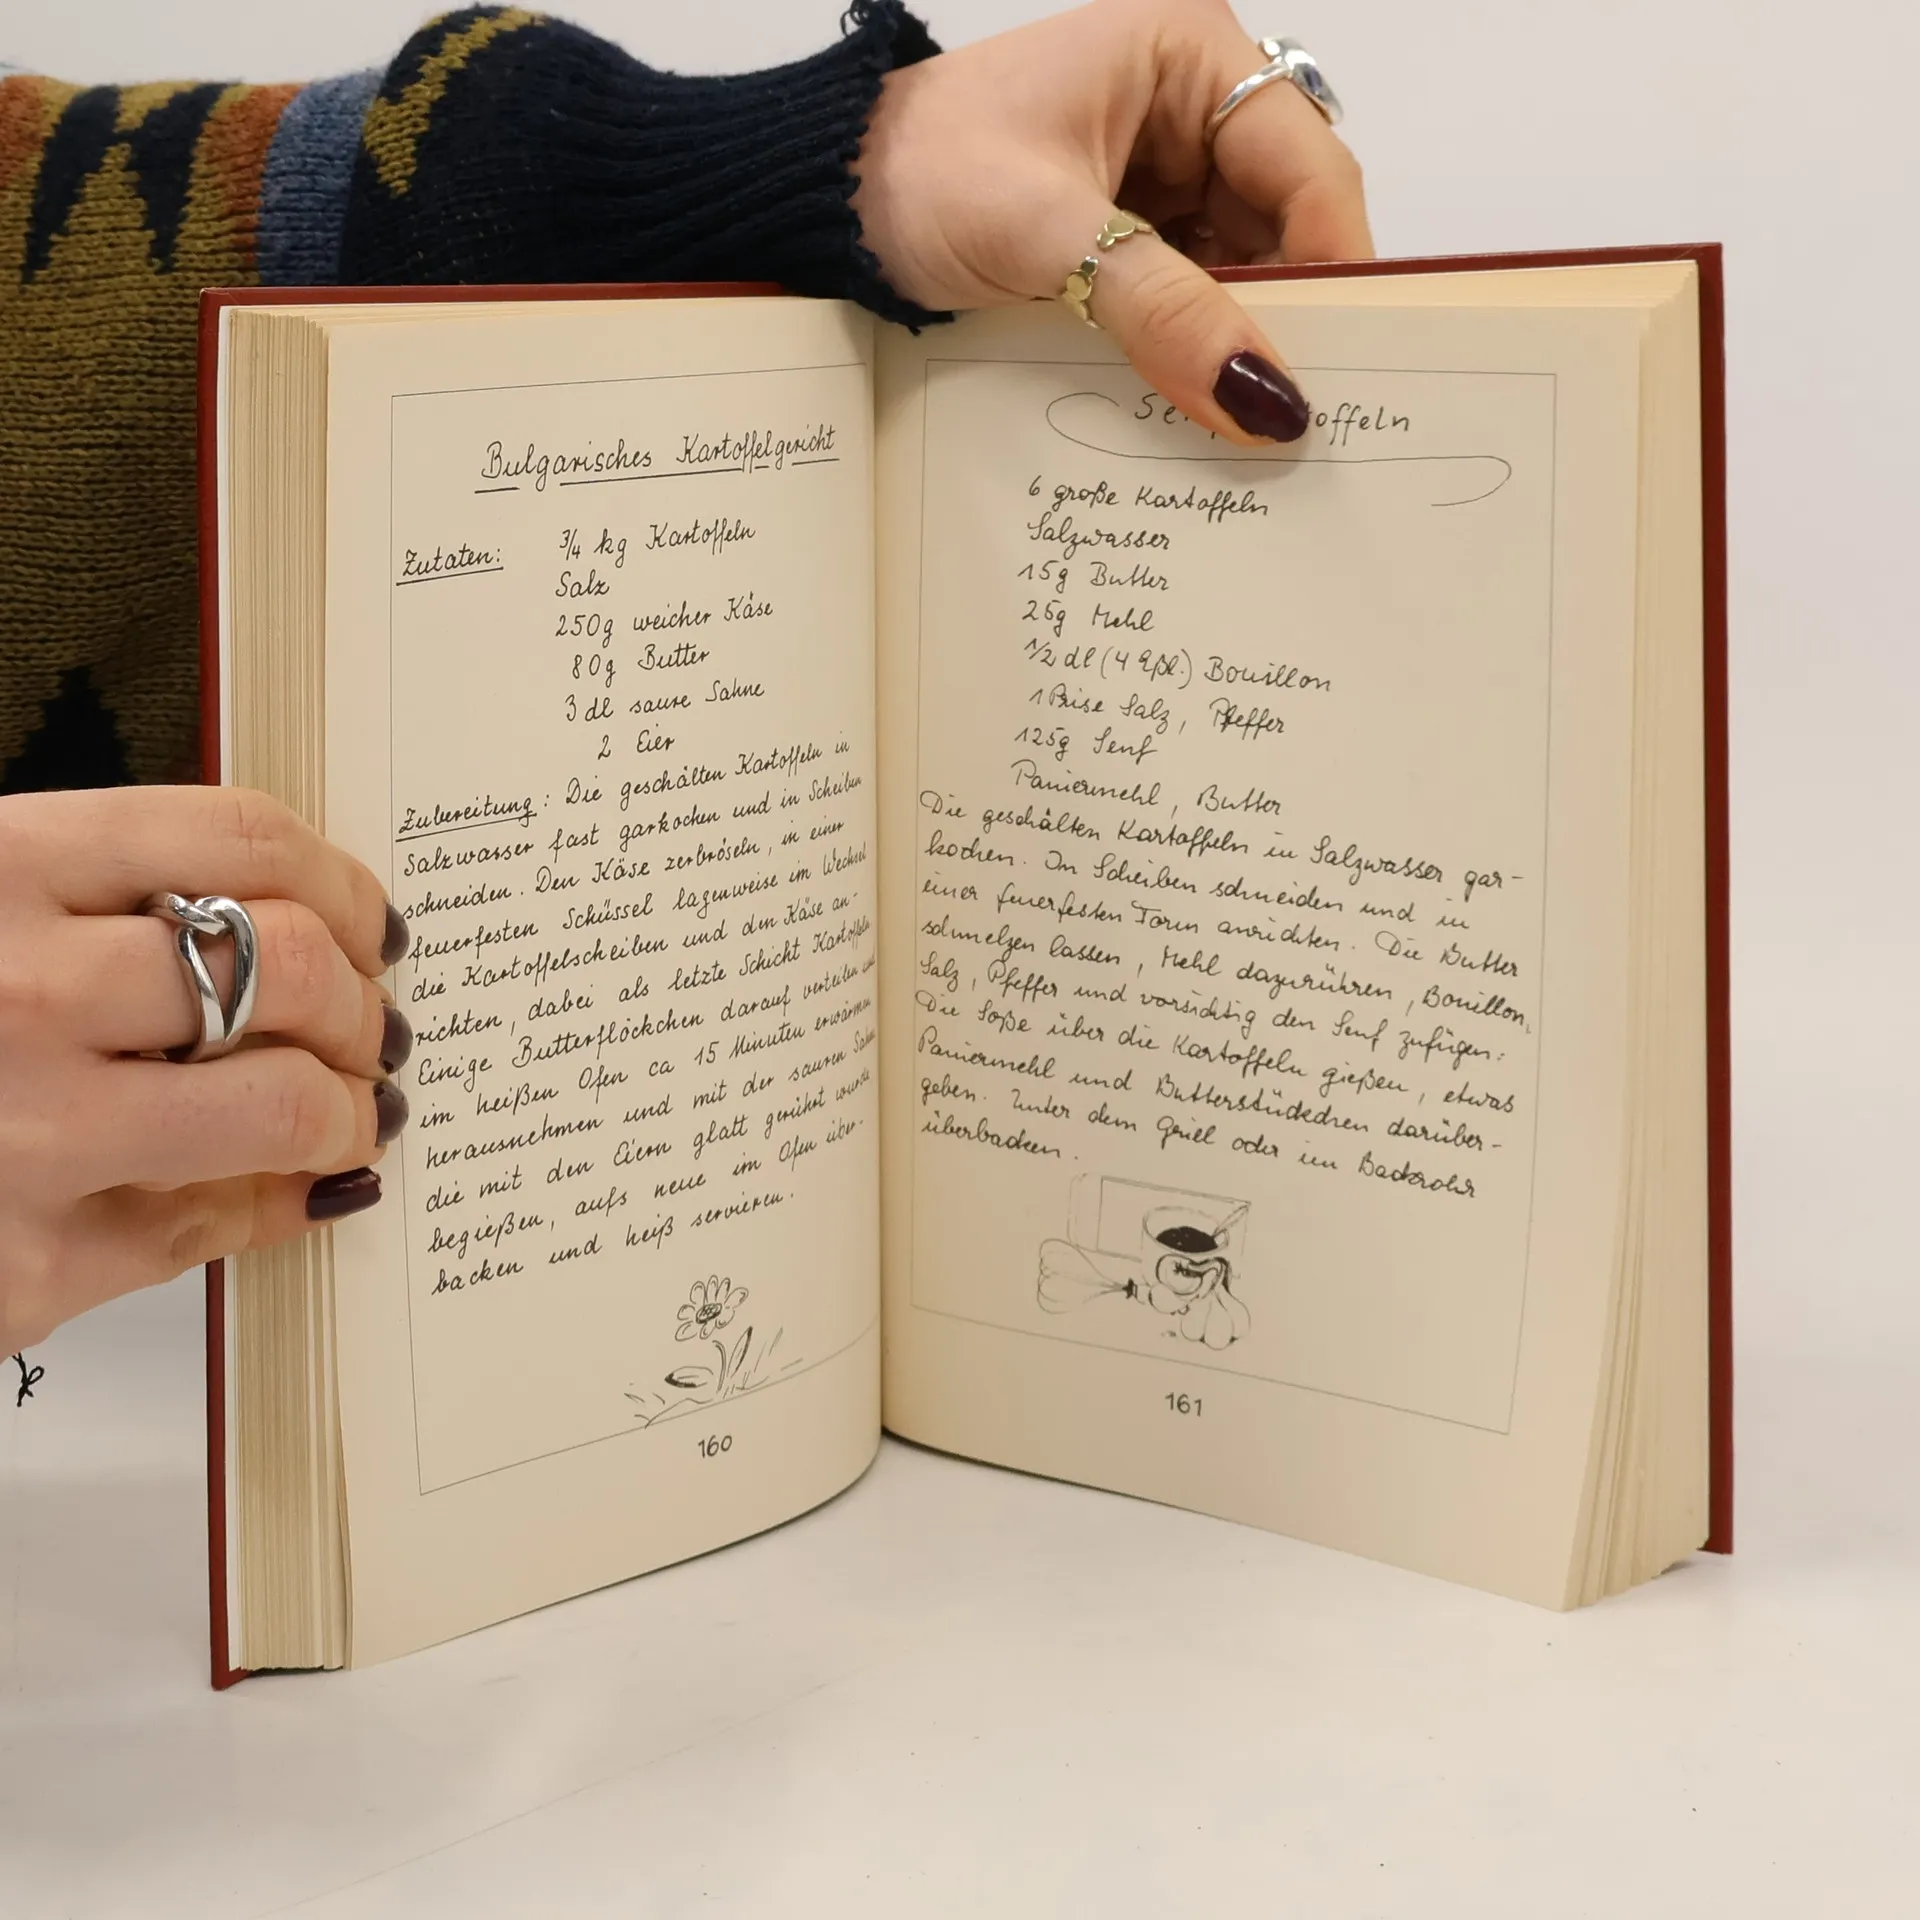 Bulgarisches Kartoffelgericht
Zutaten:
3/4 kg Kartoffeln
Salz
250g weicher Käse
80g Butter
3 dl saure Sahne
2 Eier
Zubereitung: Die geschälten Kartoffeln in
Salzwasser fast garkochen und in Scheiben
schneiden. Den Käse zerbröseln, in einer
feuerfesten Schüssel lagenweise im Wechsel
die Kartoffelscheiben und den Käse an-
richten, dabei als letzte Schicht Kartoffeln
Einige Butterflöckchen darauf verteilen und
im heißen Ofen ca 15 Minuten erwärmen
herausnehmen und mit der sauren Sahne
die mit den Eiern glatt gerührt wurde
begießen, aufs neue im Ofen über-
backen und heiß servieren.
160
offeln
6 große Kartoffeln
Salzwasser
15g Butter
25g Mehl
1/2 dl (4 Eßl.) Bouillon
1 Prise Salz, Pfeffer
125g Senf
Paniermehl, Butter
Die geschälten Kartoffeln in Salzwasser gar-
kochen. In Scheiben schneiden und in
einer feuerfesten Form anrichten. Die Butter
schmelzen lassen, Mehl dazurühren, Bouillon,
Salz, Pfeffer und vorsichtig den Senf zufügen:
Die Soße über die Kartoffeln gießen, etwas
Paniermehl und Butterstückchen darüber-
geben. Unter dem Grill oder im Backrohr
überbacken.
161